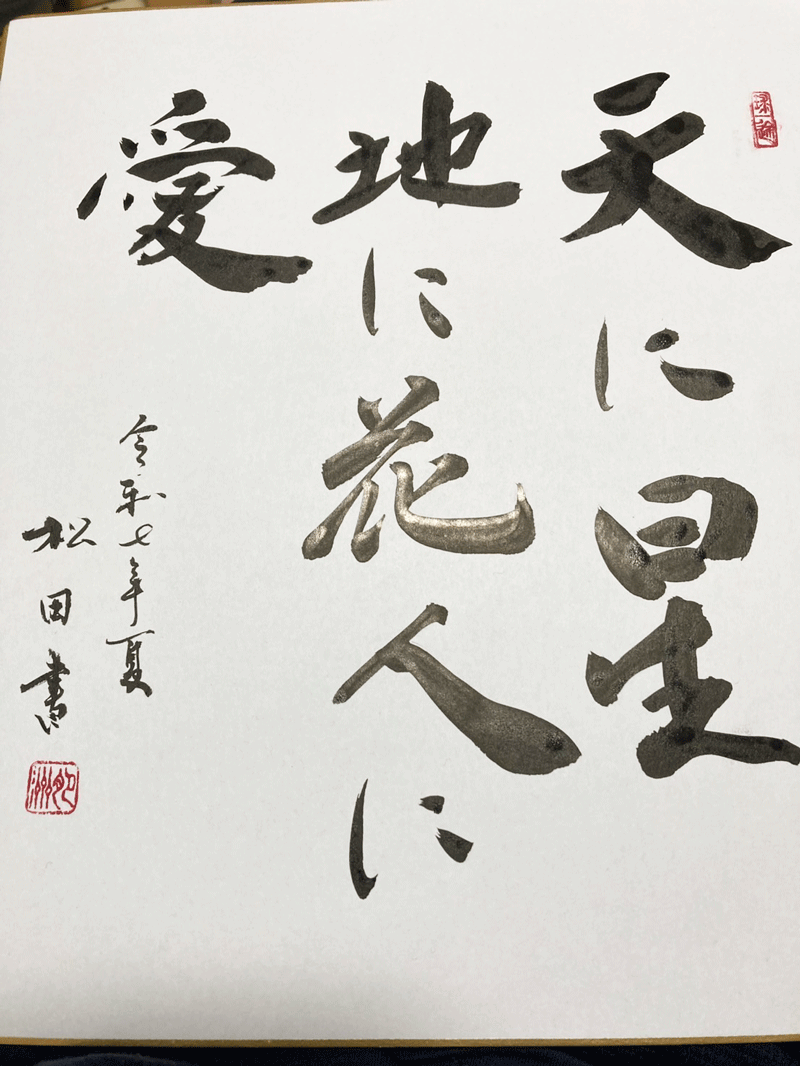 天に星
地に花人に
愛
令和七年夏
松田書